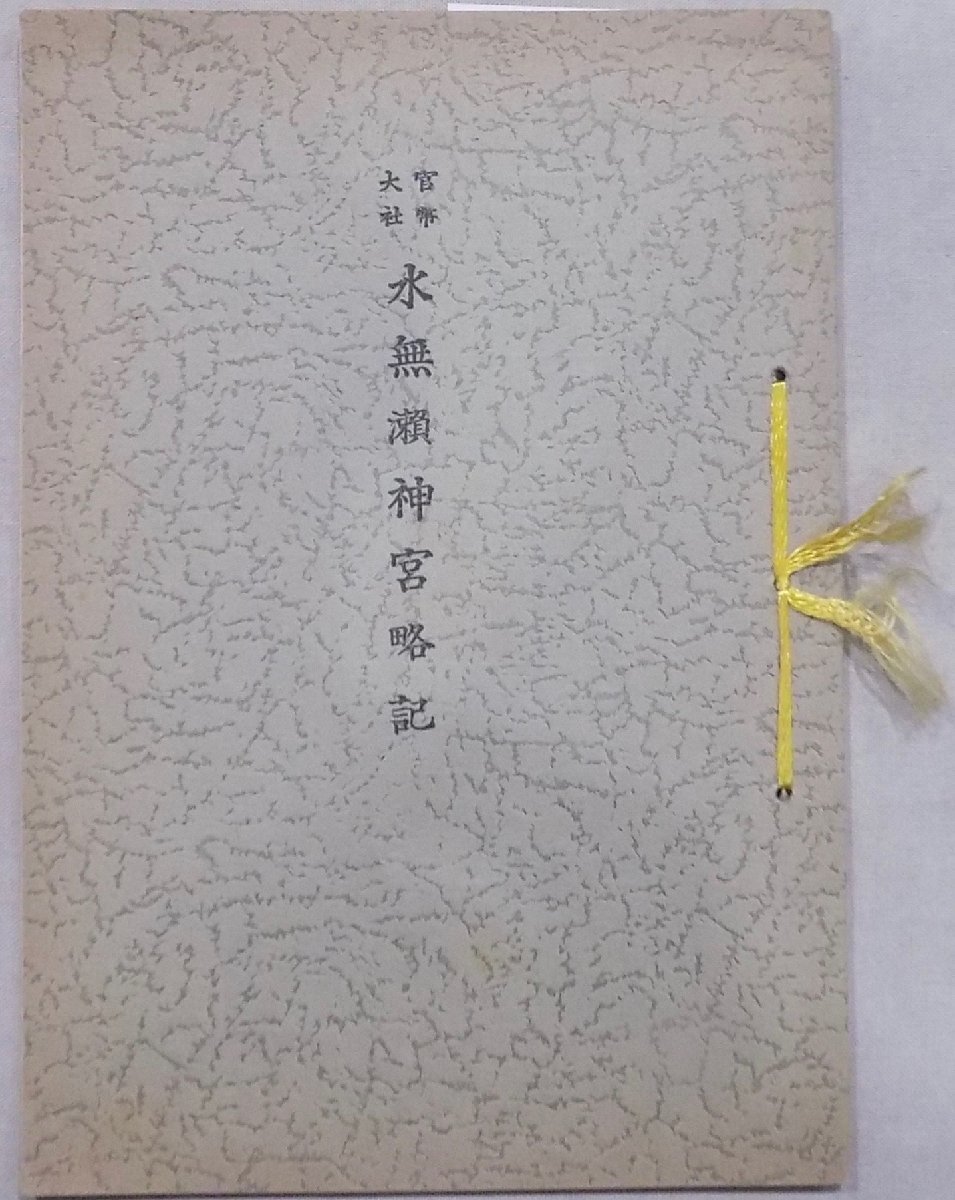 官幣
大社
水無瀬神宮略記